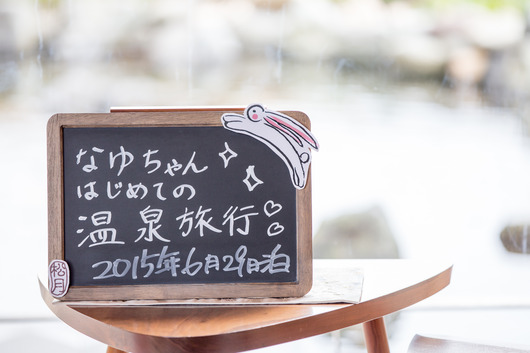 なゆちゃん
はじめての
温泉旅行
2015年.6月29日泊
松月